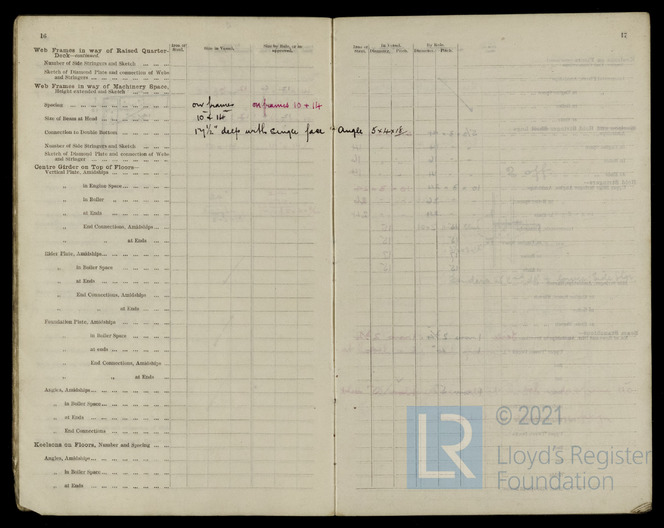 16
Web Frames in way of Raised Quarter-
Deck—continued.
Number of Side Stringers and Sketch
Sketch of Diamond Plate and connection of Webs
and Stringers
Web Frames in way of Machinery Space.
Height extended and Sketch
Spacing on frames on frames 10 + 14
Size of Beam at Head 10 & 14
Connection to Double Bottom 17½" deep with single face Angle 5 x 4 x
Number of Side Stringers and Sketch
Sketch of Diamond Plate and connection of Webs
and Stringer
Centre Girder on Top of Floors—
Vertical Plate, Amidships
" in Engine Space
" in Boiler "
" at Ends
" End Connections, Amidships
" " at Ends
Rider Plate, Amidships
" in Boiler Space
" at Ends
" End Connections, Amidships
" " at Ends
Foundation Plate, Amidships
" in Boiler Space
" at ends
" End Connections, Amidships
" " at Ends
Angles, Amidships
" in Boiler Space
" at Ends
" End Connections
Keelsons on Floors, Number and Spacing
Angles, Amidships
" in Boiler Space
" at Ends
Size in Vessel.
Size by Rule, or as
approved.
17
In Vessel.
By Rule.
Diameter. Pitch.
Diameter. Pitch.
LR
© 2021
Lloyd's Register
Foundation